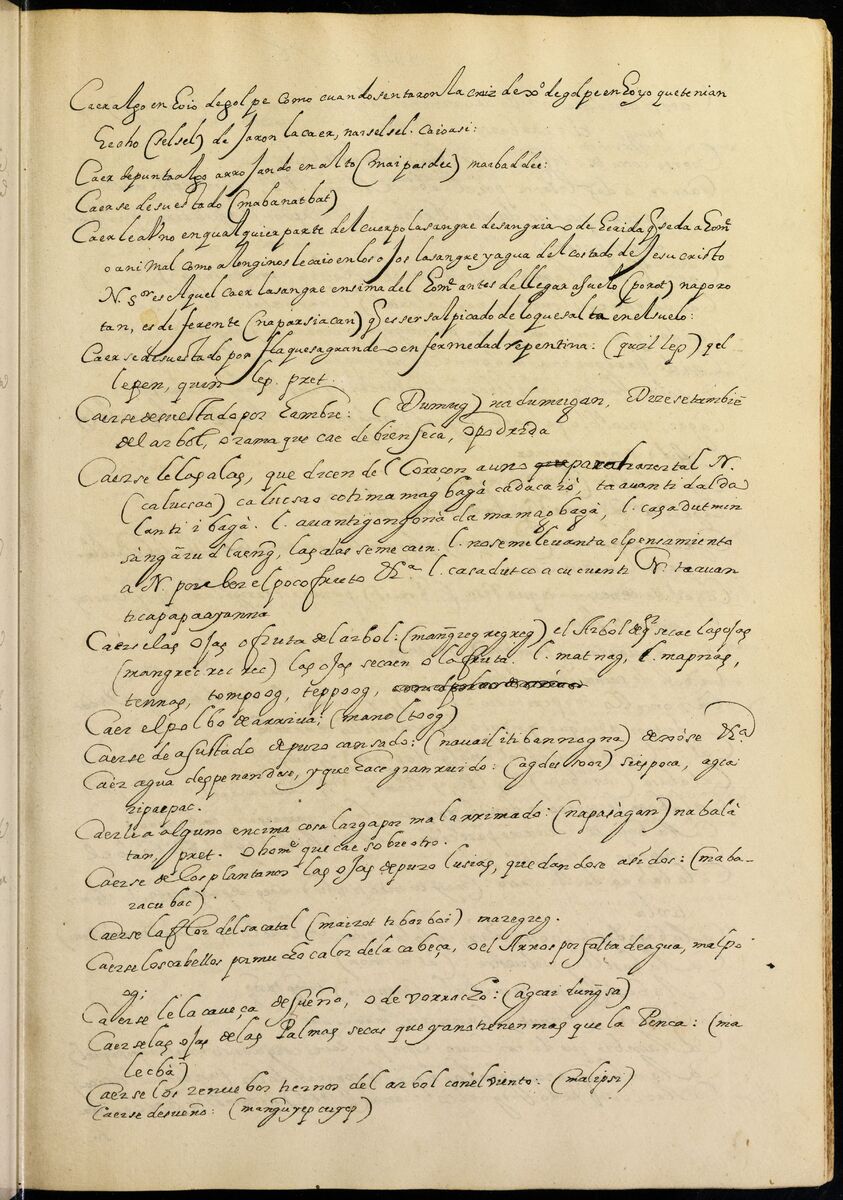 Caer algo en Eoio de golpe como cuando sentaron la cruz de Xº de golpe en Eoyo que tenian
Eecho (selsel) de Jaron la caer, narselsel. Caio asi:
Caer de punta algo arroJando en alto (maipasdec) marbaddec:
Caerse de su estado (mabanatbat)
Caerle a Uno en qualquier parte del cuerpo la sangre de sangria o de Eerida q̃ se da a Eomẽ
o animal como a longinos le caio en los oJos la sangre y agua del costado de Jesucristo
N. Sor es Aquel caer la sangre ensima del Eomẽ antes de llegar a suelo (porot) naporo
tan, es deferente (naparsiacan) q̃ es ser salpicado de lo que salta en el suelo:
Caerse de su estado por flaquesa grande o enfermedad repentina: (quillep) qel
lepen, quin lep. pret.
Caerse de su estado por Eambre: (Dumug) nadumugan, Dizese tambiẽ
del arbol, o rama que cae de bien seca, o podrida
Caerse le las alas, que dicen del Coraçon a uno para hazer tal N.
(calucsao) calucsao cotima mag bagà cadacaiò, ta auanti dalda
lanti i bagà. l. auantigongonà da mamagbagà, l. casadutmin
sàngãrud laeng, las alas se me caen. l. no se me levanta el pensamiento
a N. por ber el poco fruto &ª l. casadutco a cucuenti N. ta auan
ti capapaayanna
Caerse las oJas o fruta del arbol: (mang̃regregreg) el Arbol de q̃ se cae las oJas
(mangrecrecrec) las oJas se caen o la fruta. l. matnag, l. maprias,
tennag, tompoog, teppoog,
Caer el polbo de arriva; (manoltoog)
Caerse de asustado de puro cansado: (nauail iti bannogna) de nòse &ª
Caer agua despenandose, y que Eace gran ruido: (agdessoor) si es poca, agca
ripacpac.
Caerle a alguno encima cosa larga por mal arrimado: (napasàgan) nabalà
tan, pret. o bomẽ que cae sobre otro.
Caerse de los plantanos las oJas de puro lusias, quedandose asidos: (maba-
racubac)
Caerse la flor del sacatal (mairot ti borboi) maregreg.
Caerse los cabellos por mucho calor de la cabeça, o el Arros por falta de agua, malpo
og;
Caerse le la caveça de sueño, o de vorracho: (agcar lung̃sa)
Caerse las oJas de las Palmas secas que ya no tienen mas que la Penca: (ma
lecbà)
Caerse los renuebos tiernos del arbol con el viento: (malipsi)
Caerse de sueño: (mang̃uyepcuyep)